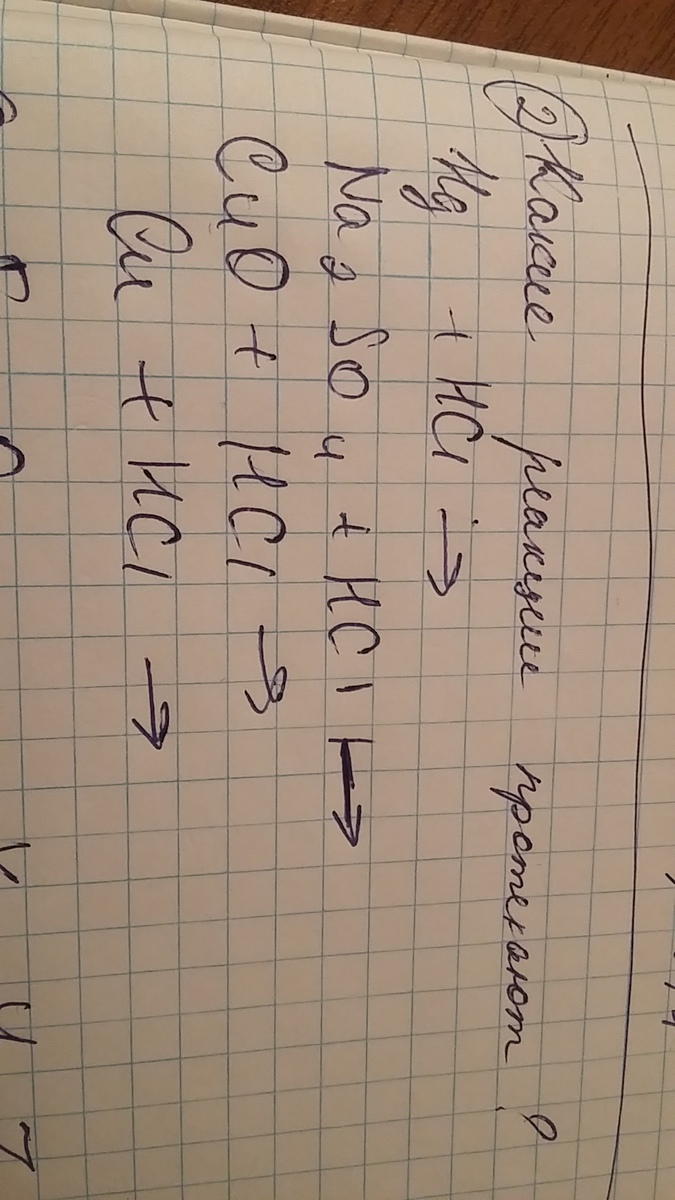 2) Какие реакции протекают?
Hg + HCl →
Na2SO4 + HCl →
CuO + HCl →
Cu + HCl →